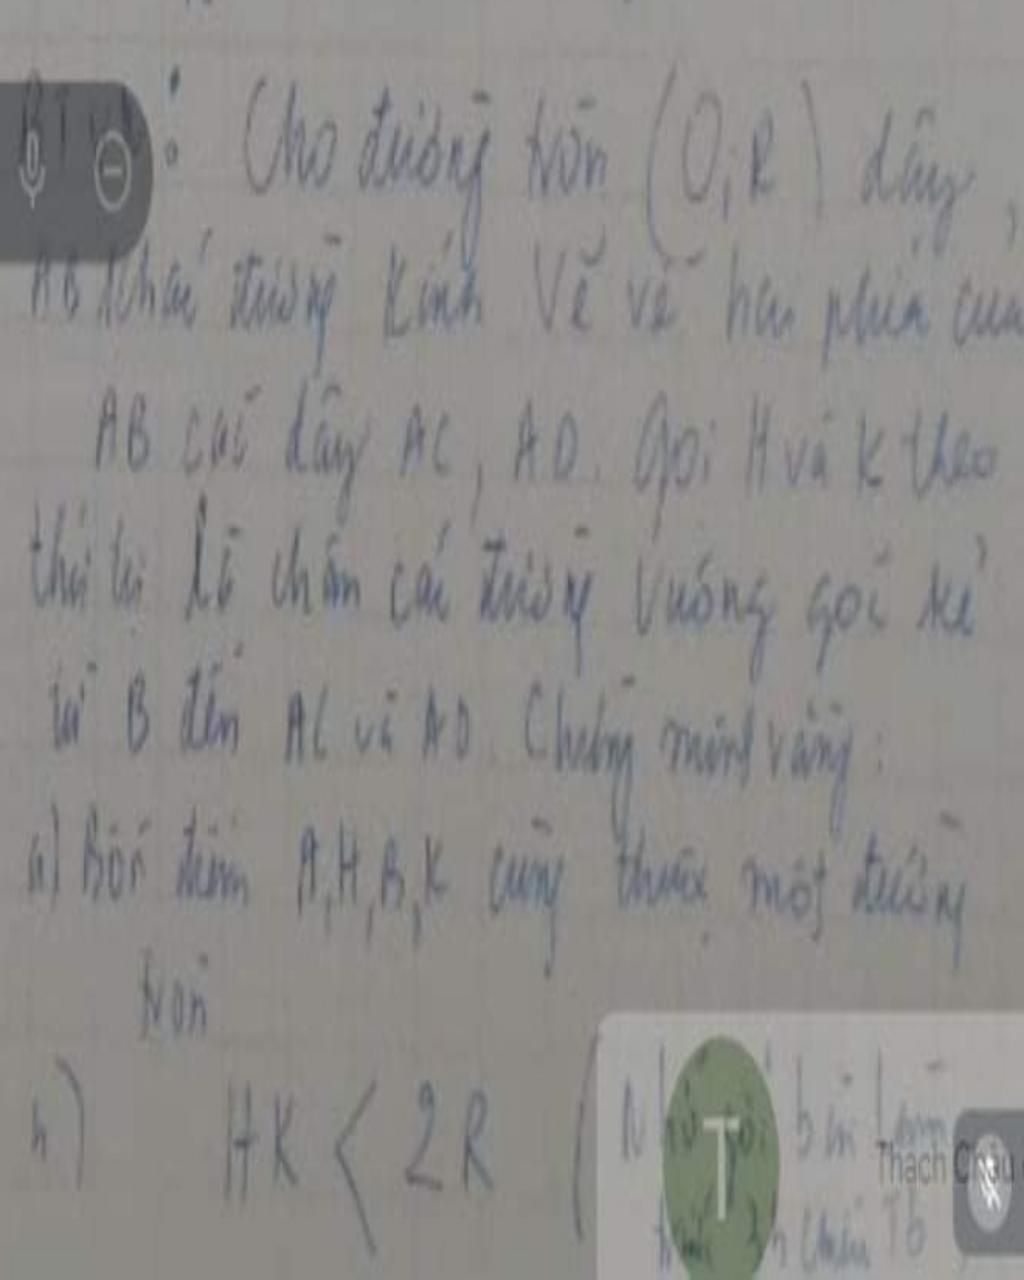 Cho đường tròn (O;R) dây
AB khác đường kính Vẽ về hai phía của
AB các dây AC, AD. Gọi H và K theo
thứ tự là chân các đường vuông góc kẻ
từ B đến AC và AD. Chứng minh rằng:
a) Bốn điểm A,H,B,K cùng thuộc một đường
tròn
b) HK < 2R (
T
Thach Chau